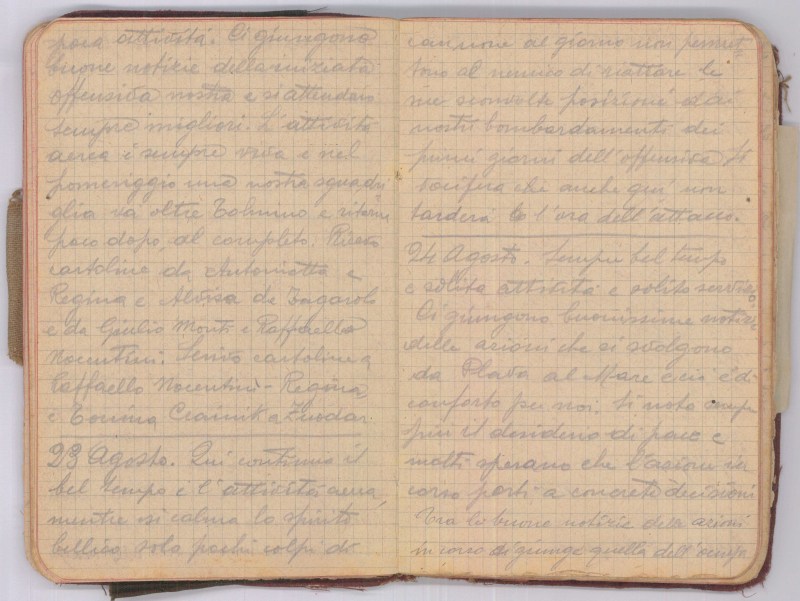 poca attività. Ci giungono
buone notizie della iniziata
offensiva nostra e si attendono
sempre migliori. L'attività
aerea è sempre viva e nel
pomeriggio una nostra squadri
glia va oltre Tolmino e ritorna
poco dopo, al completo. Ricevo
cartoline da Antonietta e
Regina e Alvisa da Zagarolo
e da Giulio Monti e Raffaello
Nocentini. Scrivo cartoline a
Raffaello Nocentini - Regina
e Tonina Crainik a Zuodar.
23 Agosto. Qui continua il
bel tempo e l'attività aerea,
mentre si calma lo spirito
bellico, solo pochi colpi di
cannone al giorno non permet
tono al nemico di riattare le
sue sconvolte posizioni dai
nostri bombardamenti dei
primi giorni dell'offensiva. Si
vocifera che anche qui non
tarderà l'ora dell'attacco.
24 Agosto. Sempre bel tempo
e solita attività e solito servizio.
Ci giungono buonissime notizie
delle azioni che si svolgono
da Plava al Mare e ciò è di
conforto per noi. Si nota sempre
più il desiderio di pace e
molti sperano che l'azione in
corso porti a concrete decisioni
Tra le buone notizie delle azioni
in corso ci giunge quella dell'